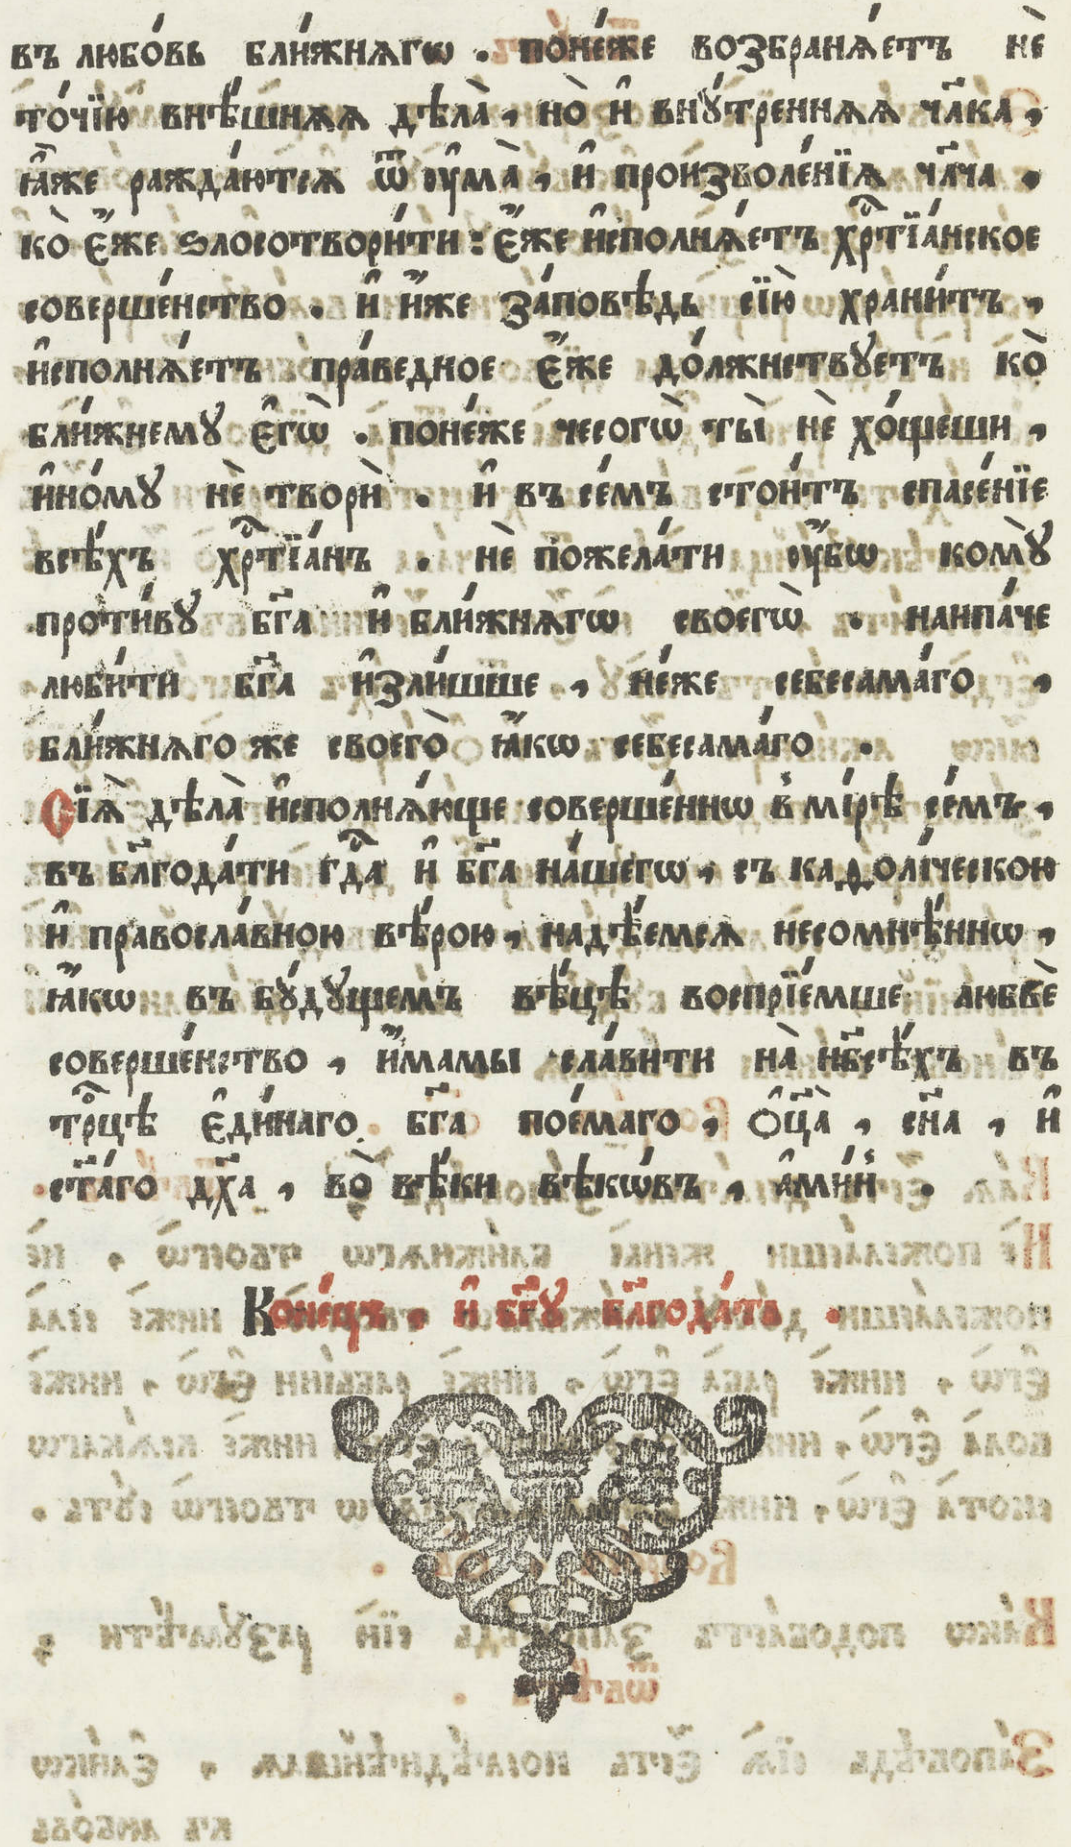 въ любо́вь бли́жнѧгѡ . поне́же возбранѧ́етъ нѐ
то́чїю внѣ́шнѧѧ дѣла̀, но̀ и҆ внꙋ́тренняѧ чл҃ка,
ꙗ҆̀же ражда́ютсѧ ѿ ᲂу҆ма̀, и҆ произволе́нїѧ чл҃ча .
ко̀ є҆́же ѕлосотвори́ти: є҆́же и҆сполнѧ́етъ хрⷭ҇тїа́нское
соверше́нство . и҆ и҆́же за́повѣдь сїю̀ храни́тъ,
и҆сполнѧ́етъ пра́ведное є҆́же до́лжнствꙋетъ ко̀
бли́жнемꙋ є҆гѡ̀ . поне́же чесогѡ̀ ты̀ нѐ хо́щеши,
и҆но́мꙋ нѐ твори̇̀ . и҆ въ се́мъ стои́тъ спасе́нїе
всѣ́хъ хрⷭ҇тїа́нъ . нѐ пожела́ти ᲂу҆́бѡ комꙋ̀
проти́вꙋ бг҃а и҆ бли́жнѧгѡ своегѡ̀ . наипа́че
люби́ти бг҃а и҆зли́шше, не́же себесама́го,
бли́жнѧго же своего̀ ꙗ҆́кѡ себесама́го .
Сїѧ̀ дѣла̀ и҆сполнѧ́юще соверше́ннѡ в̾ мі́рѣ се́мъ,
въ бл҃года́ти гдⷭ҇а и҆ бг҃а на́шегѡ, съ каѳолі́ческою
и҆ правосла́вною вѣ́рою, надѣ́емсѧ несомнѣ́ннѡ,
ꙗ҆́кѡ въ бꙋ́дꙋщемъ вѣ́цѣ воспрїе́мше любвѐ
соверше́нство, и҆́мамы сла́вити на̀ нб҃сѣ́хъ въ
трⷪ҇цѣ є҆ди́наго бг҃а пое́маго, ѻ҆ц҃а̀, сн҃а, и҆
ст҃а́го дх҃а, во̀ вѣ́ки вѣкѡ́въ, а҆ми́н̾ .
Коне́цъ, и҆ бг҃ꙋ бл҃года́ть .